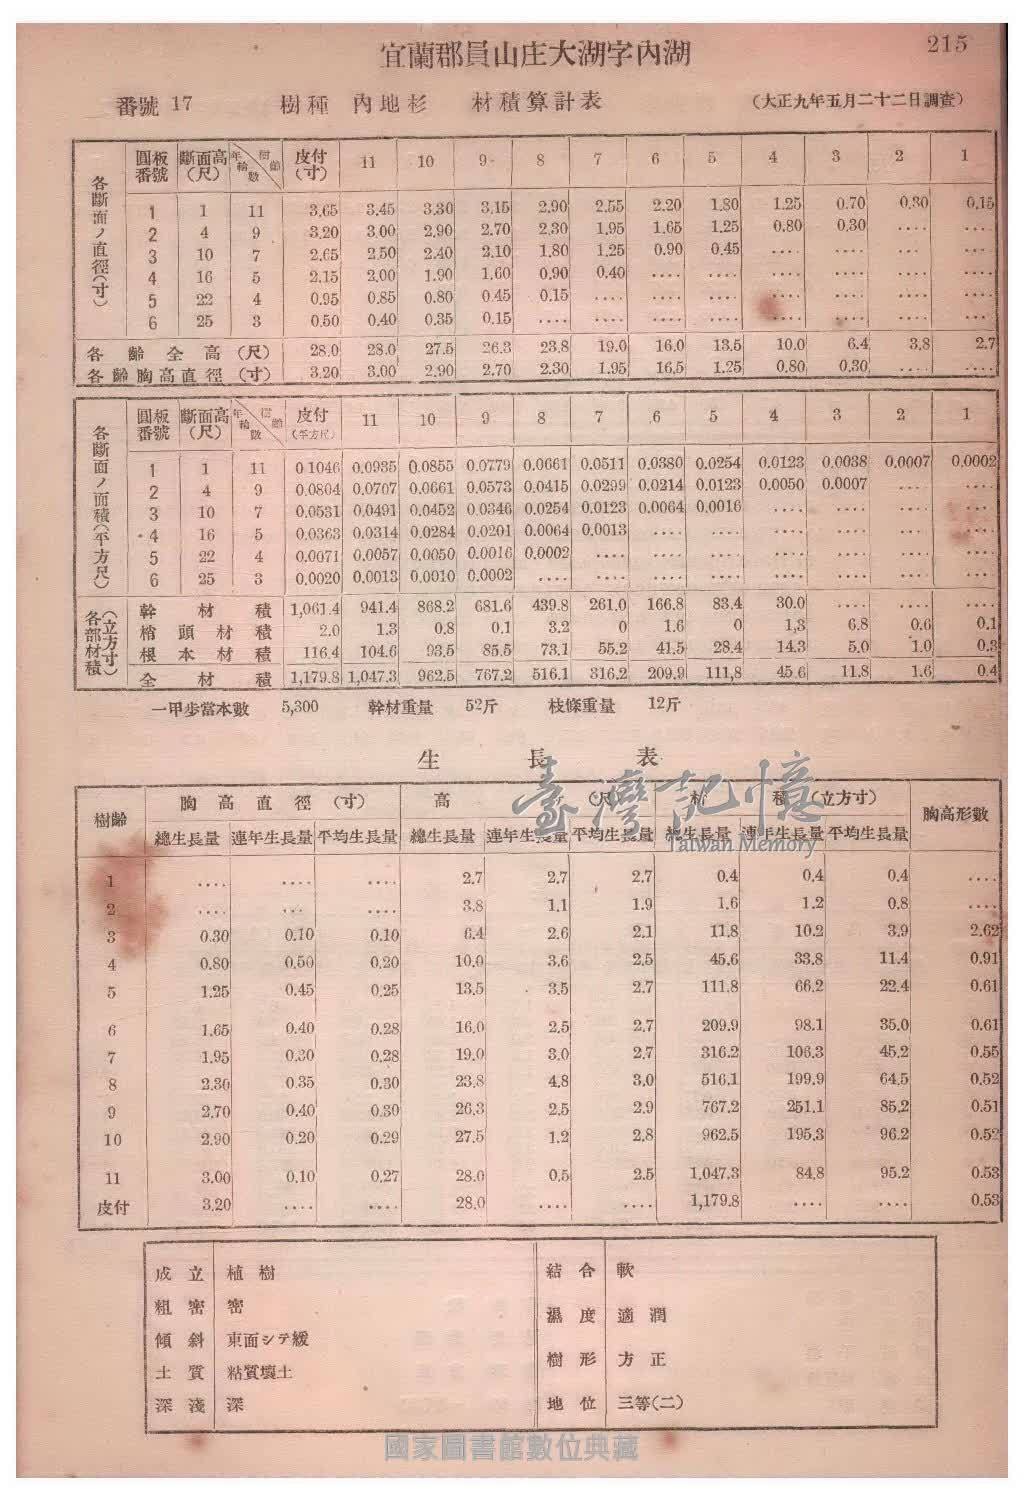 215
宜蘭郡員山庄大湖字內湖
番號 17 樹種 內地杉 材積算計表 (大正九年五月二十二日調査)
各斷面ノ直徑(寸)
圓板番號 斷面高(尺) 年輪數 樹齡 皮付(寸) 11 10 9 8 7 6 5 4 3 2 1
1 1 11 3.65 3.45 3.30 3.15 2.90 2.55 2.20 1.80 1.25 0.70 0.30 0.15
2 4 9 3.20 3.00 2.90 2.70 2.30 1.95 1.65 1.25 0.80 0.30 .... ....
3 10 7 2.65 2.50 2.40 2.10 1.80 1.25 0.90 0.45 .... .... .... ....
4 16 5 2.15 2.00 1.90 1.60 0.90 0.40 .... .... .... .... .... ....
5 22 4 0.95 0.85 0.80 0.45 0.15 .... .... .... .... .... .... ....
6 25 3 0.50 0.40 0.35 0.15 .... .... .... .... .... .... .... ....
各齡全高(尺) 28.0 28.0 27.5 26.3 23.8 19.0 16.0 13.5 10.0 6.4 3.8 2.7
各齡胸高直徑(寸) 3.20 3.00 2.90 2.70 2.30 1.95 16.5 1.25 0.80 0.30 .... ....
各斷面ノ面積(平方尺)
圓板番號 斷面高(尺) 年輪數 樹齡 皮付(平方尺) 11 10 9 8 7 6 5 4 3 2 1
1 1 11 0.1046 0.0935 0.0855 0.0779 0.0661 0.0511 0.0380 0.0254 0.0123 0.0038 0.0007 0.0002
2 4 9 0.0804 0.0707 0.0661 0.0573 0.0415 0.0299 0.0214 0.0123 0.0050 0.0007 .... ....
3 10 7 0.0531 0.0491 0.0452 0.0346 0.0254 0.0123 0.0064 0.0016 .... .... .... ....
4 16 5 0.0363 0.0314 0.0284 0.0201 0.0064 0.0013 .... .... .... .... .... ....
5 22 4 0.0071 0.0057 0.0050 0.0016 0.0002 .... .... .... .... .... .... ....
6 25 3 0.0020 0.0013 0.0010 0.0002 .... .... .... .... .... .... .... ....
各部材積(立方寸)
幹材積 1,061.4 941.4 868.2 681.6 439.8 261.0 166.8 83.4 30.0 .... .... ....
梢頭材積 2.0 1.3 0.8 0.1 3.2 0 1.6 0 1,3 6.8 0.6 0.1
根本材積 116.4 104.6 93.5 85.5 73.1 55.2 41.5 28.4 14.3 5.0 1.0 0.3
全材積 1,179.8 1,047.3 962.5 767.2 516.1 316.2 209.9 111,8 45.6 11.8 1.6 0.4
一甲步當本數 5,300 幹材重量 52斤 枝條重量 12斤
生長表
樹齡 胸高直徑(寸) 高(尺) 材積(立方寸) 胸高形數
總生長量 連年生長量 平均生長量 總生長量 連年生長量 平均生長量 總生長量 連年生長量 平均生長量
1 .... .... .... 2.7 2.7 2.7 0.4 0.4 0.4 ....
2 .... .... .... 3.8 1.1 1.9 1.6 1.2 0.8 ....
3 0.30 0.10 0.10 6.4 2.6 2.1 11.8 10.2 3.9 2.62
4 0.80 0.50 0.20 10.0 3.6 2.5 45.6 33.8 11.4 0.91
5 1.25 0.45 0.25 13.5 3.5 2.7 111.8 66.2 22.4 0.61
6 1.65 0.40 0.28 16.0 2.5 2.7 209.9 98.1 35.0 0.61
7 1.95 0.30 0.28 19.0 3.0 2.7 316.2 106.3 45.2 0.55
8 2.30 0.35 0.30 23.8 4.8 3.0 516.1 199.9 64.5 0.52
9 2.70 0.40 0.30 26.3 2.5 2.9 767.2 251.1 85.2 0.51
10 2.90 0.20 0.29 27.5 1.2 2.8 962.5 195.3 96.2 0.52
11 3.00 0.10 0.27 28.0 0.5 2.5 1,047.3 84.8 95.2 0.53
皮付 3.20 .... .... 28.0 .... .... 1,179.8 .... .... 0.53
臺灣記憶
Taiwan Memory
成立 植樹 結合 軟
粗密 密 濕度 適潤
傾斜 東面シテ緩 樹形 方正
土質 粘質壤土 地位 三等(二)
深淺 深
國家圖書館數位典藏